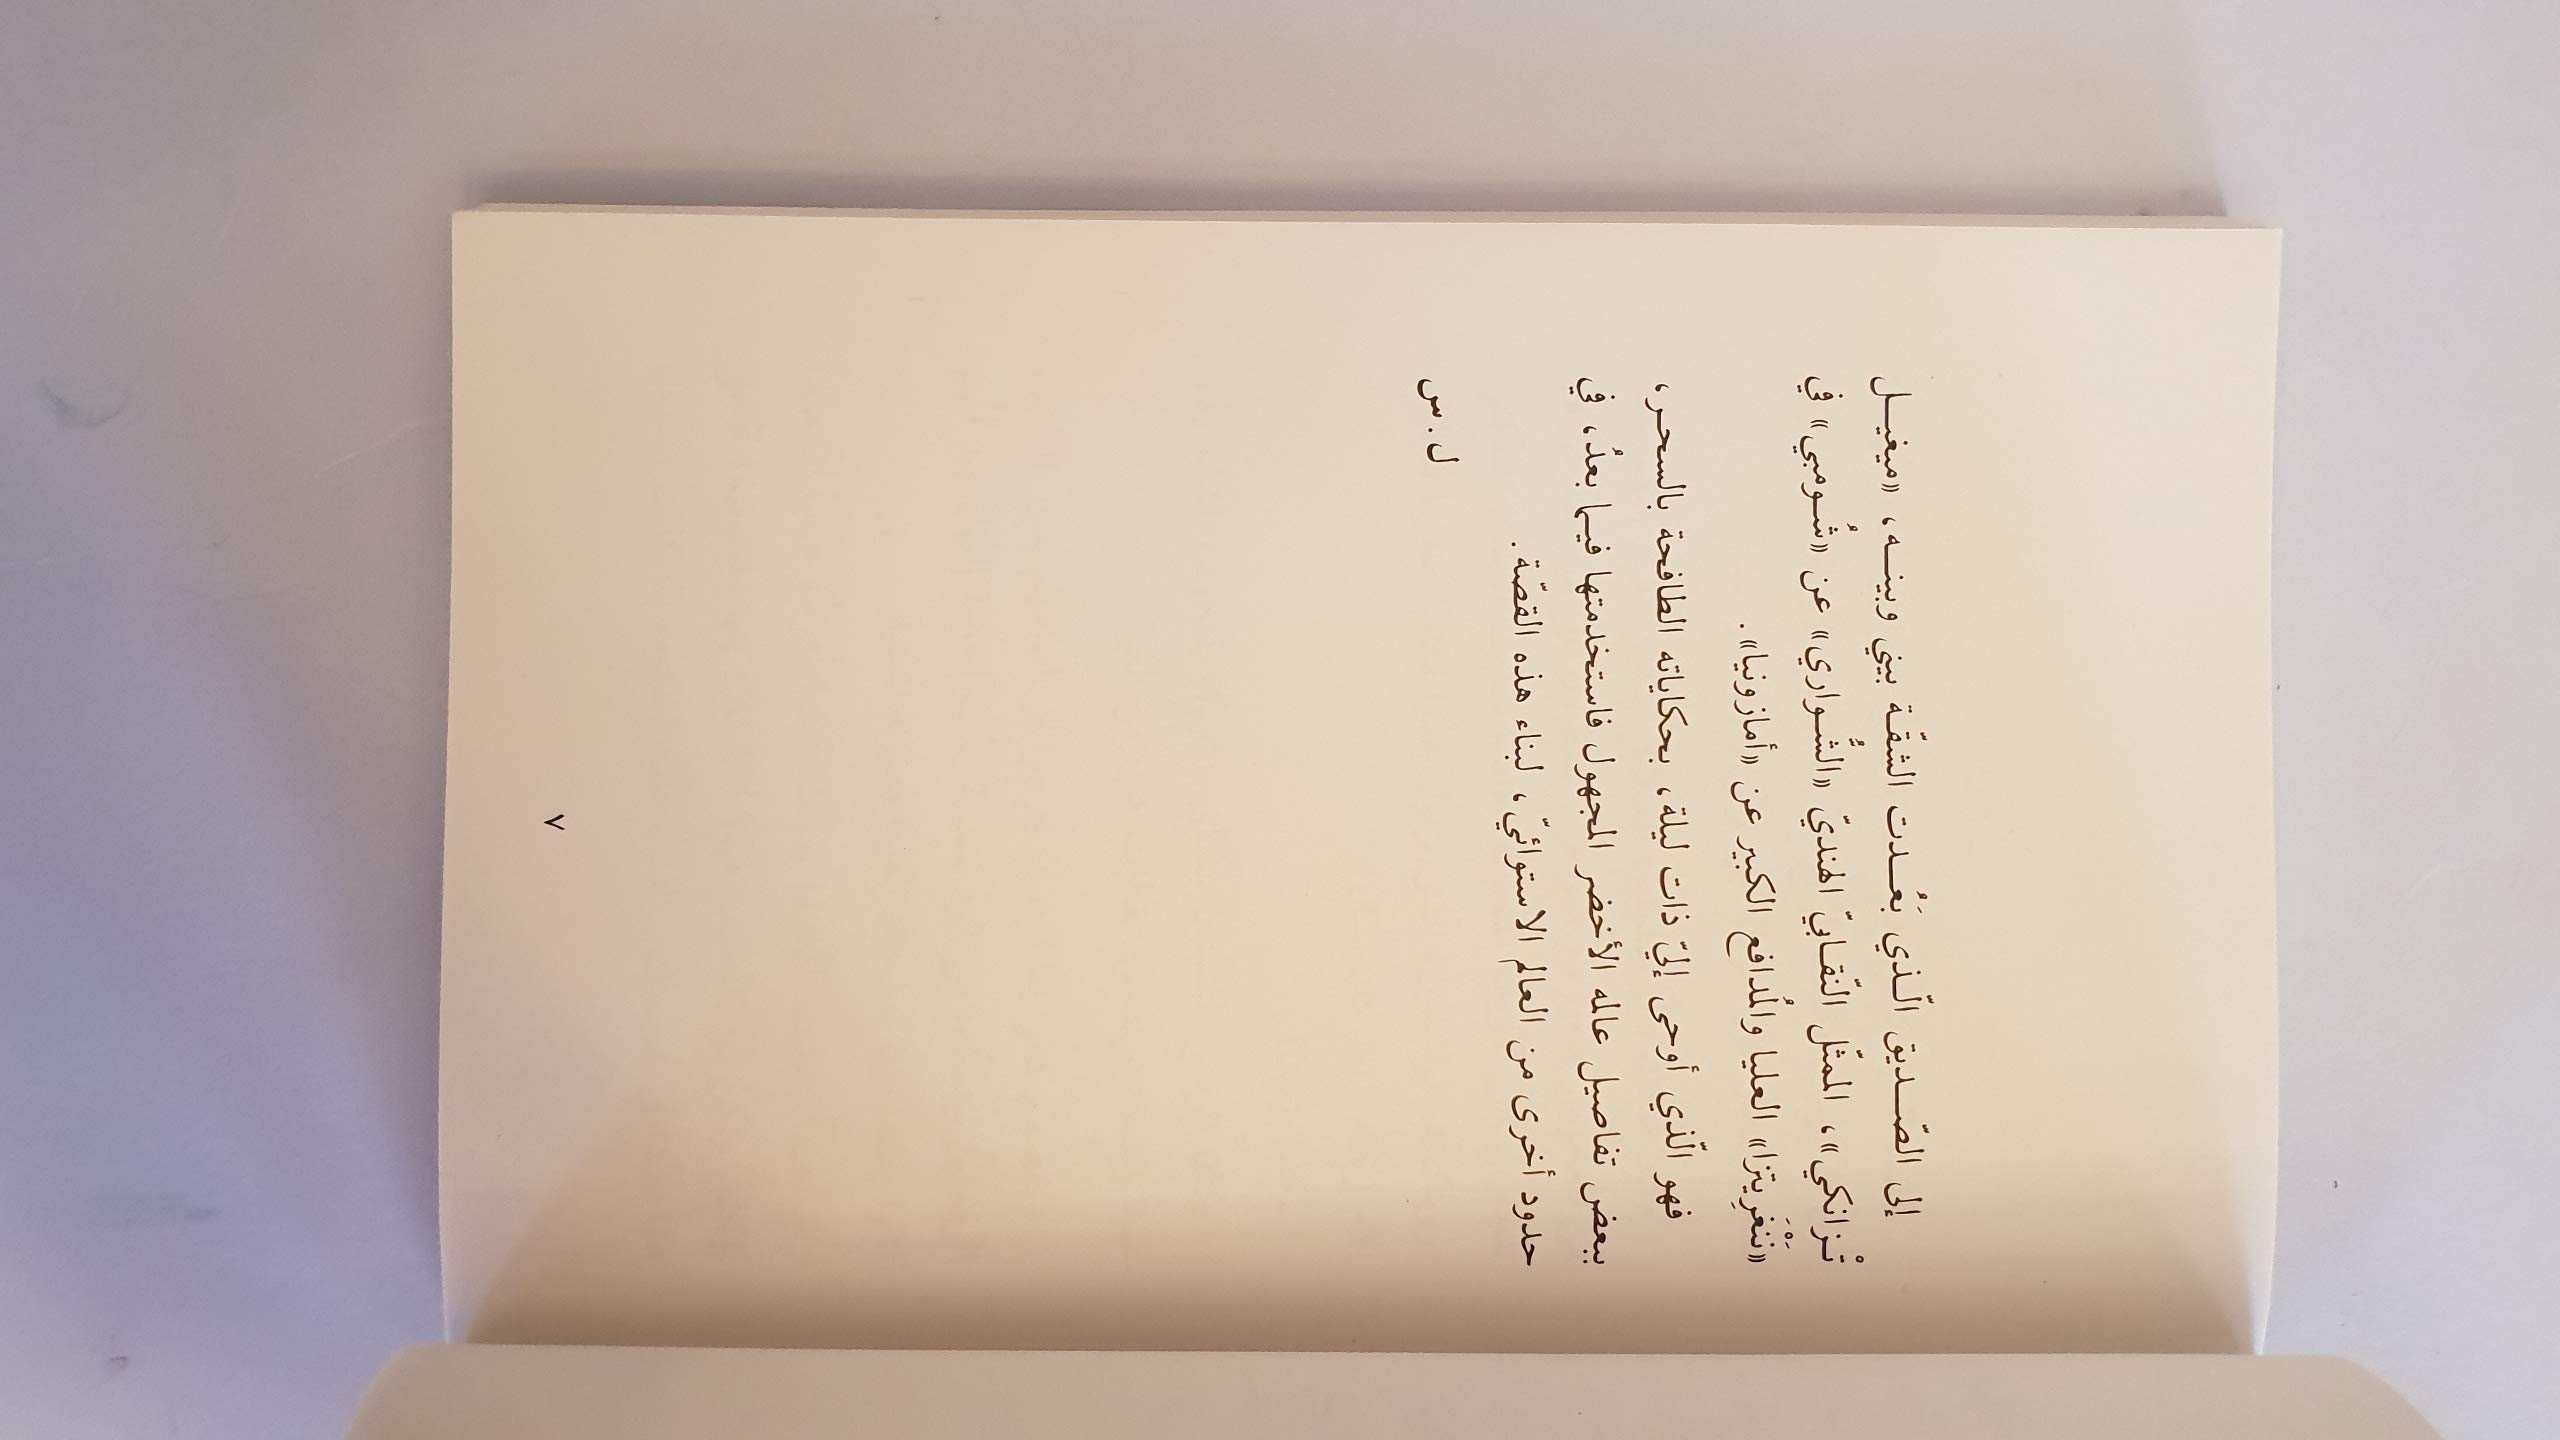 إلى الصّديق الّذي بَعُدت الشقّة بيني وبينه، «ميغيل
تْزانكي»، الممثّل النّقابيّ الهنديّ «الشُّواري» عن «شُومبي» في
«نَنْغَرِيتزا» العليا والمُدافع الكبير عن «أمازونيا».
فهو الّذي أوحى إليّ ذات ليلة، بحكاياته الطافحة بالسحر،
ببعض تفاصيل عالمه الأخضر المجهول فاستخدمتها فيما بعدُ، في
حدود أخرى من العالم الاستوائيّ، لبناء هذه القصّة.
ل.س
٧